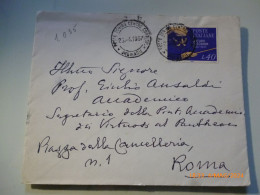 Ill.mo Signore
Prof. Giulio Ansaldi
Accademico
Segretario della Pont. Accademia
dei Virtuosi al Pantheon
Piazza della Cancelleria,
n. 1
Roma
POSTE ITALIANE
L. 40